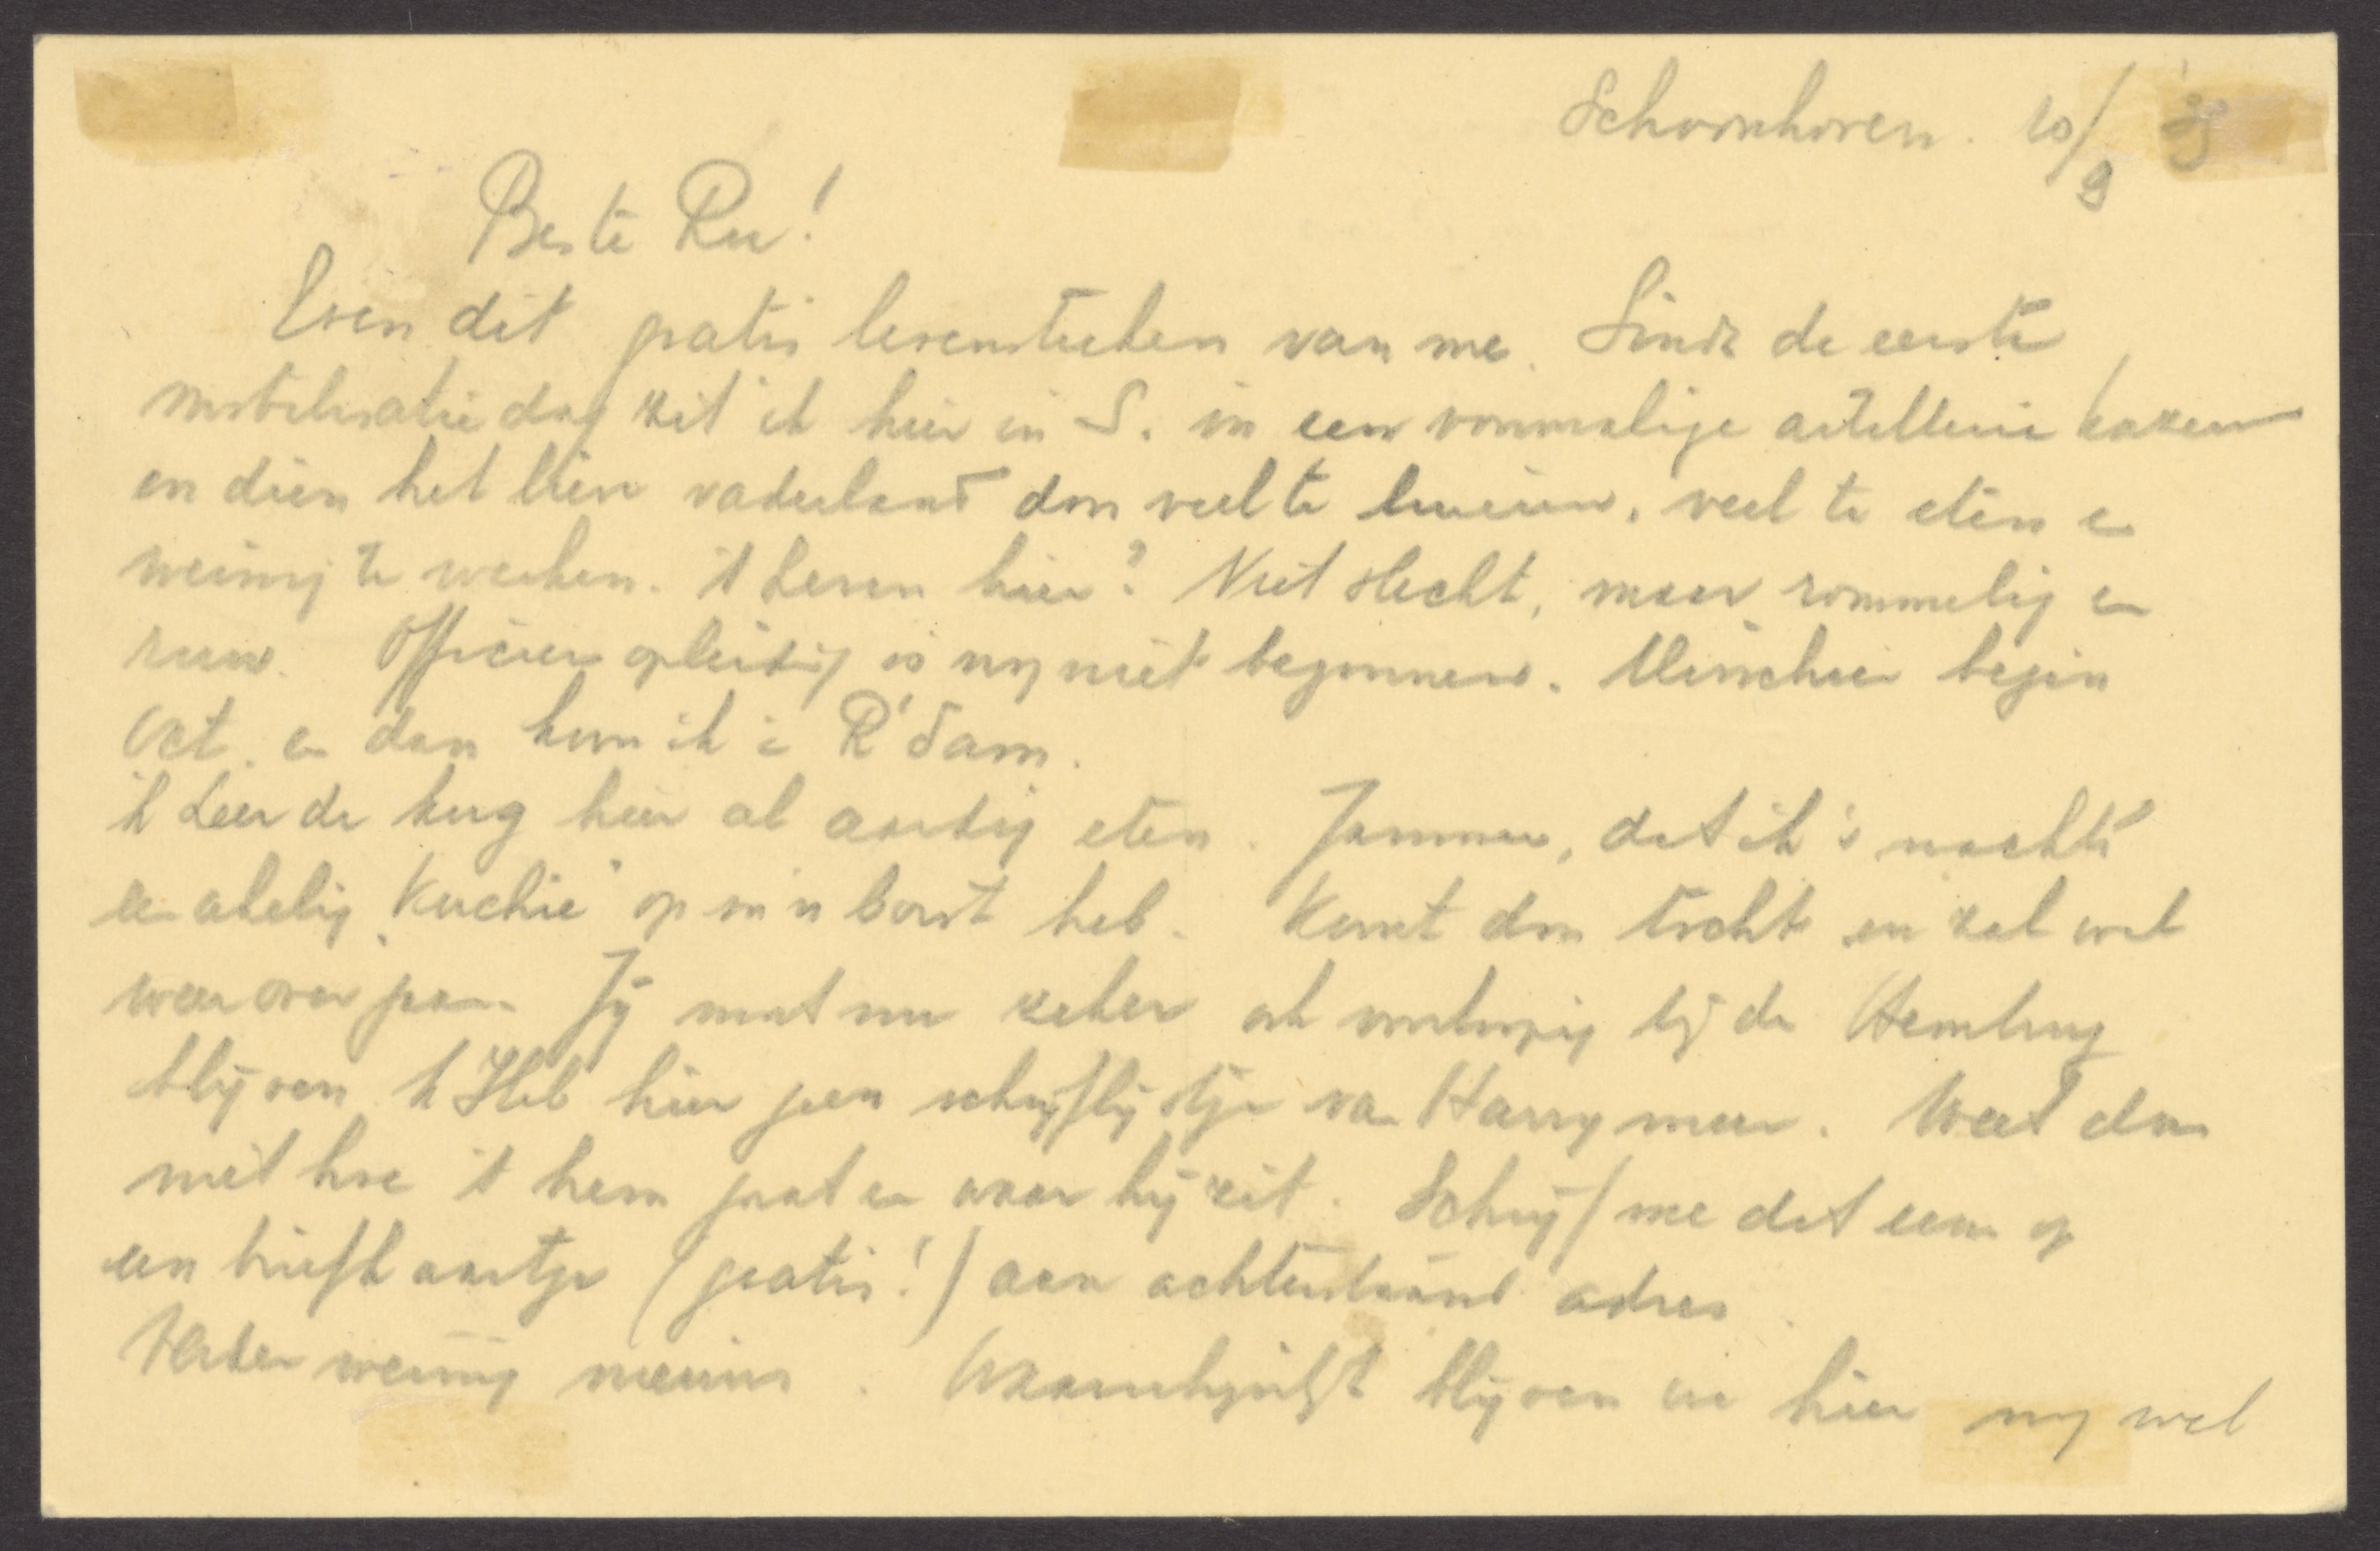 Schoonhoven. 10/9 '39
Beste Ru!
Even dit gratis levensteeken van me. Sinds de eerste
mobilisatiedag zit ik hier in S. in een voormalige artillerie kazern
en dien het lieve vaderland door veel te luieren, veel te eten en
weinig te werken. 't Leven hier? Niet slecht, maar rommelig en
ruw. Officiersopleiding is nog niet begonnen. Misschien begin
Oct. en dan kom ik in R'dam.
'k Leer de kug hier al aardig eten. Jammer, dat ik 's nachts
een akelig "kuchie" op m'n borst heb. Komt door tocht en zal wel
weer over gaan. Jij moet nu zeker ook voorloopig bij de Hembrug
blijven. 'k Heb hier geen schrijflijstje van Harry meer. Weet dus
niet hoe 't hem gaat en waar hij zit. Schrijf me dat eens op
een briefkaartje (gratis!) aan achterstaand adres.
Verder weinig nieuws. Waarschijnlijk blijven we hier nog wel